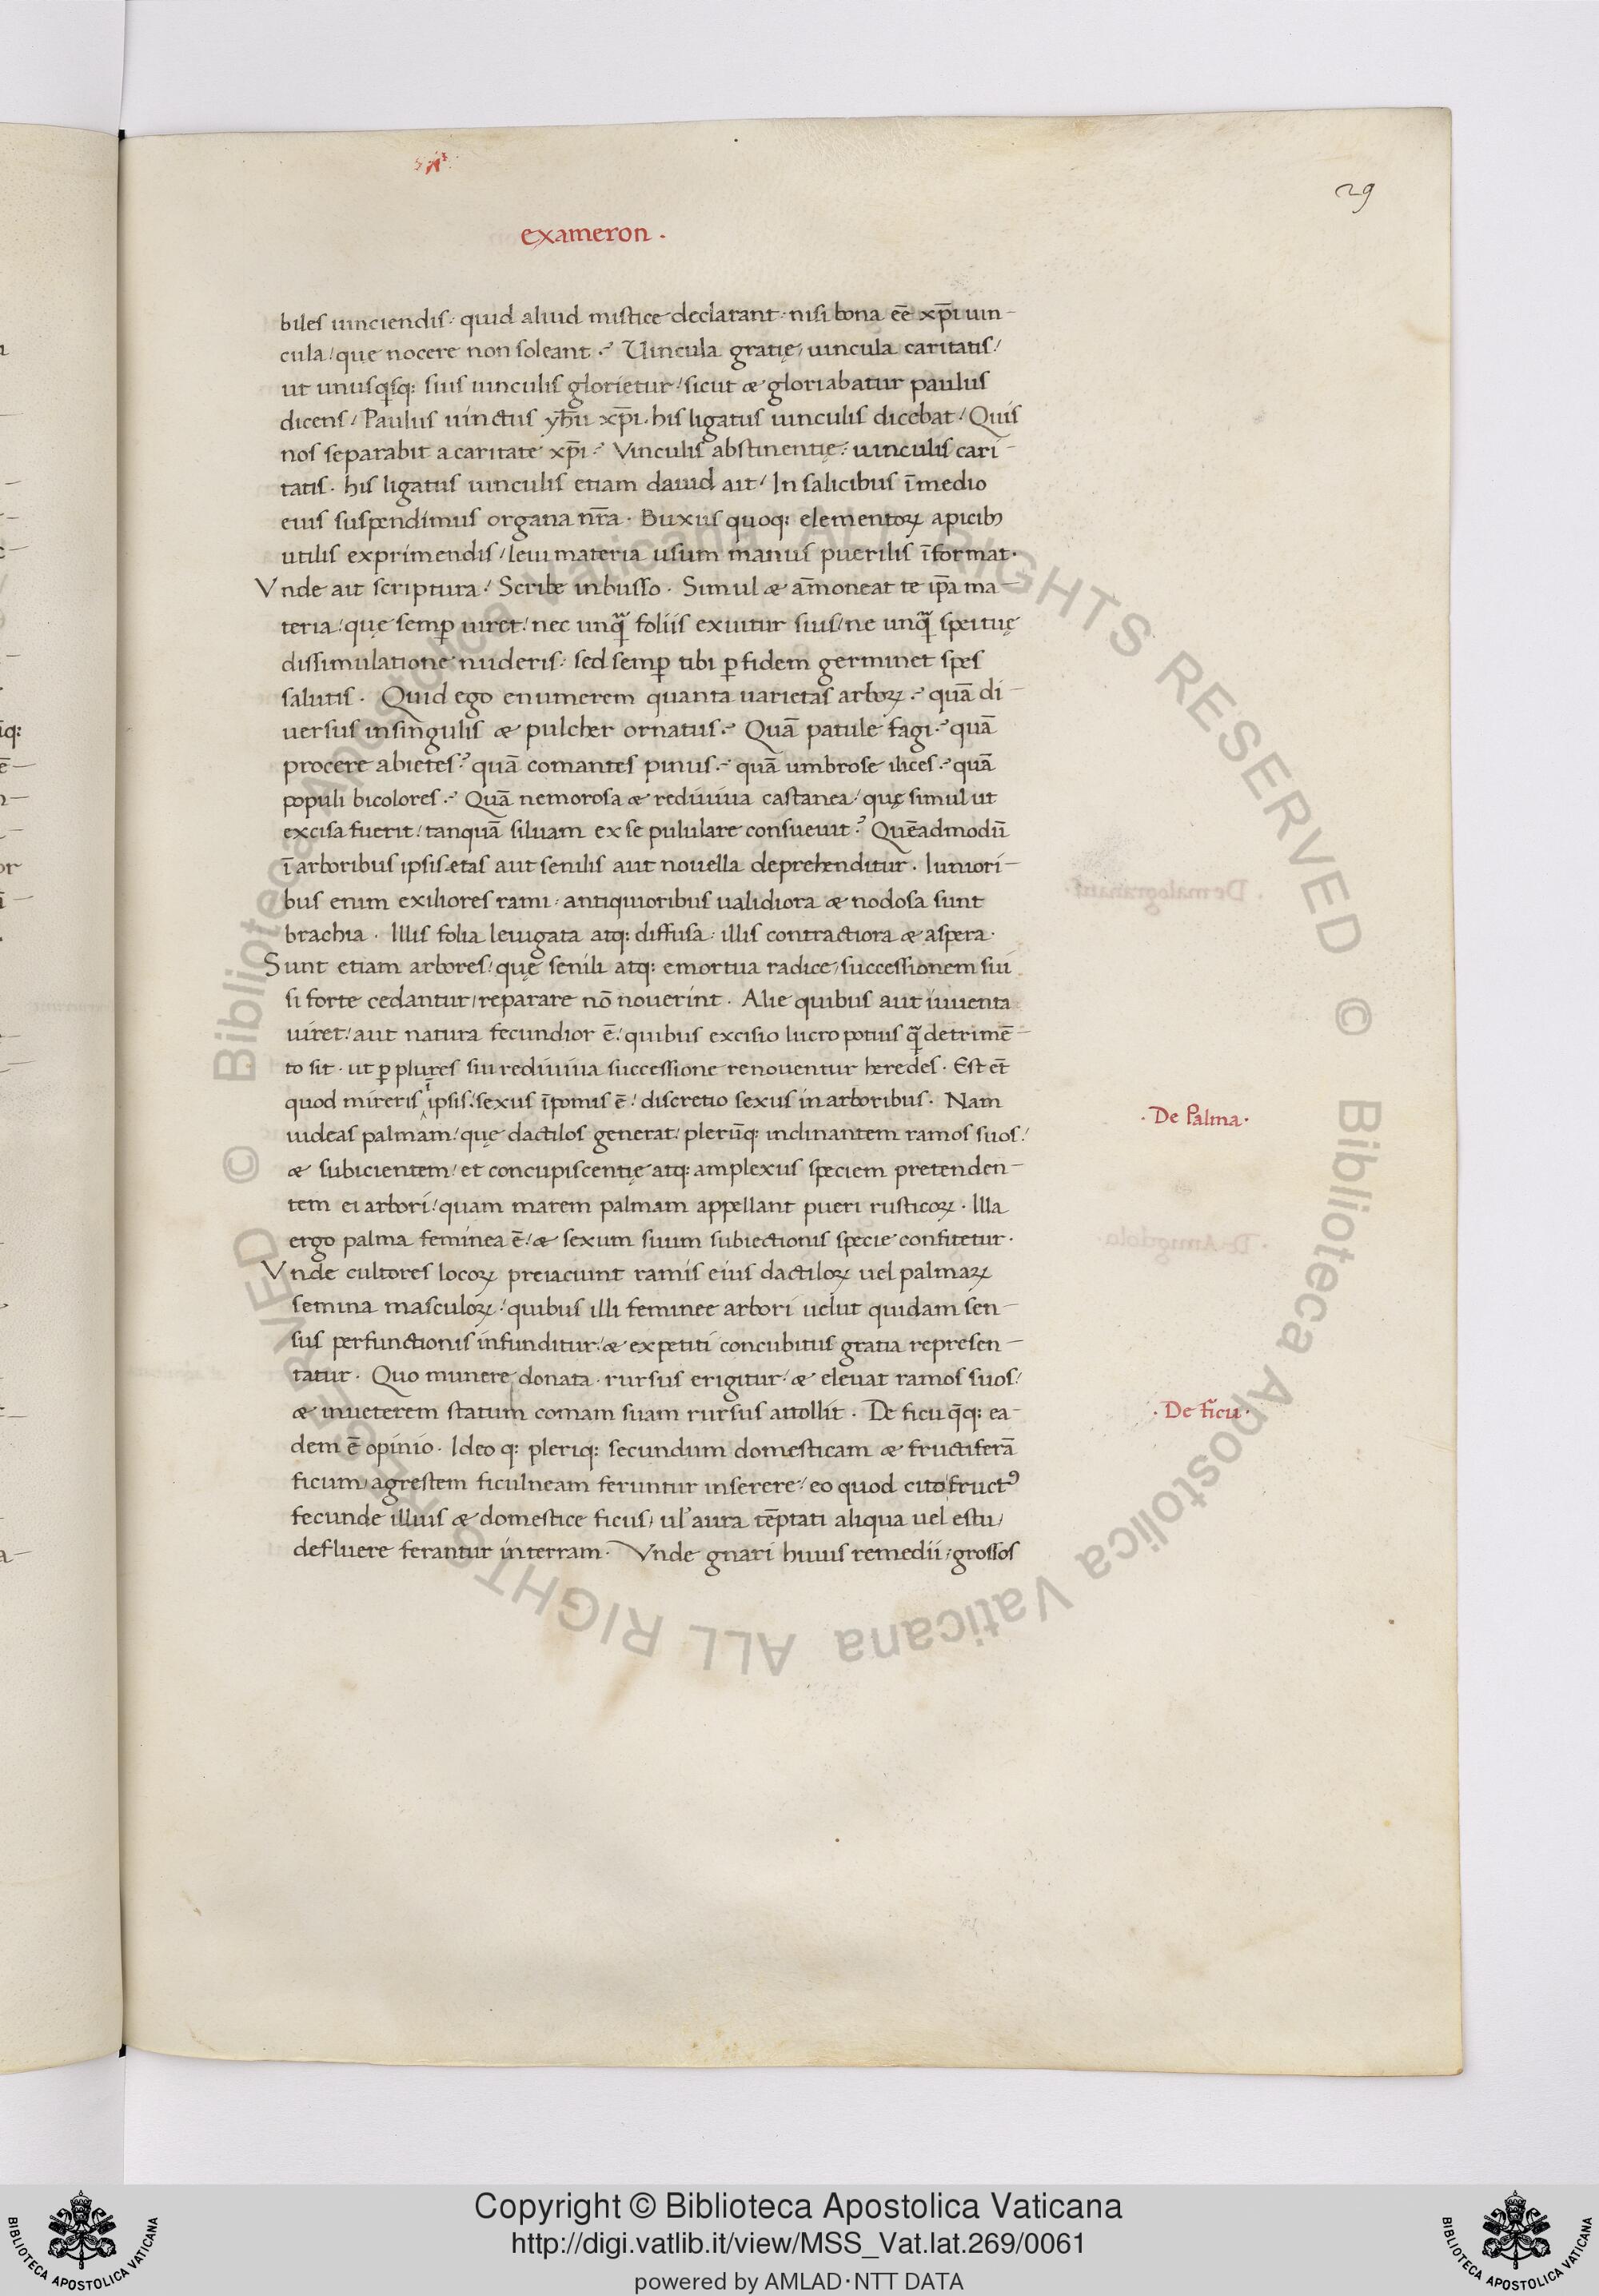 29
exameron .
biles uinciendis : quid aliud mistice declarant · nisi bona ee̅ xp̅i uin-
cula / que nocere non soleant . Uincula gratię / uincula caritatis /
ut unusqsq: suis uinculis glorietur / sicut & gloriabatur paulus
dicens / Paulus uinctus yhu̅ xp̅i · his ligatus uinculis dicebat / Quis
nos separabit a caritate xp̅i . Vinculis abstinentię : uinculis cari-
tatis · his ligatus uinculis etiam dauid ait / In salicibus i̅ medio
eius suspendimus organa nr̅a · Buxus quoq: elementoꝝ apicib;
utilis exprimendis / leui materia usum manus puerilis i̅format ·
Vnde ait scriptura / Scribe in busso · Simul & am̅oneat te ip̅a ma-
teria / quę semꝑ uiret / nec unq̃ foliis exuitur suis / ne unq̃ spei tuę
dissimulatione nuderis : sed semꝑ tibi ꝑ fidem germinet spes
salutis . Quid ego enumerem quanta uarietas arboꝝ . qua̅ di-
uersus in singulis & pulcher ornatus . Qua̅ patule fagi . qua̅
procere abietes . qua̅ comantes pinus . qua̅ umbrose ilices . qua̅
populi bicolores . Qua̅ nemorosa & rediuiua castanea / quę simul ut
excisa fuerit / tanqua̅ siluam ex se pululare consueuit . Que̅admodu̅
i̅ arboribus ipsis etas aut senilis aut nouella deprehenditur . Iuniori-
bus enim exiliores rami · antiquioribus ualidiora & nodosa sunt
brachia . Illis folia leuigata atq: diffusa · illis contractiora & aspera ·
Sunt etiam arbores / quę senili atq: emortua radice / successionem sui
si forte cedantur / reparare no̅ nouerint . Alie quibus aut iuuenta
uiret / aut natura fecundior e̅ / quibus excisio lucro potius q̃ detrime̅-
to sit · ut ꝑ plures sui rediuiua successione renouentur heredes . Est et̅
quod mireris i̅ ipsis / sexus i̅ pomis e̅ / discretio sexus in arboribus . Nam
uideas palmam / quę dactilos generat / pleru̅q: inclinantem ramos suos /
& subicientem / et concupiscentię atq: amplexus speciem pretenden-
tem ei arbori / quam marem palmam appellant pueri rusticoꝝ . Illa
ergo palma feminea e̅ / & sexum suum subiectionis specie confitetur .
Vnde cultores locoꝝ preiaciunt ramis eius dactiloꝝ uel palmaꝝ
semina masculoꝝ / quibus illi feminee arbori uelut quidam sen-
sus perfunctionis infunditur / & expetiti concubitus gratia represen-
tatur . Quo munere donata · rursus erigitur / & eleuat ramos suos /
& in ueterem statum comam suam rursus attollit . De ficu q̅q: ea-
dem e̅ opinio . Ideo q: pleriq: secundum domesticam & fructifera̅
ficum / agrestem ficulneam feruntur inserere / eo quod cito fructꝰ
fecunde illius & domestice ficus / ul' aura te̅ptati aliqua uel estu /
defluere ferantur in terram . Vnde gnari huius remedii / grossos
· De Palma ·
· De ficu ·
© Biblioteca Apostolica Vaticana ALL RIGHTS RESERVED © Biblioteca Apostolica Vaticana ALL RIGHTS RESERVED
Copyright © Biblioteca Apostolica Vaticana
http://digi.vatlib.it/view/MSS_Vat.lat.269/0061
powered by AMLAD·NTT DATA
BIBLIOTECA APOSTOLICA VATICANA
BIBLIOTECA APOSTOLICA VATICANA